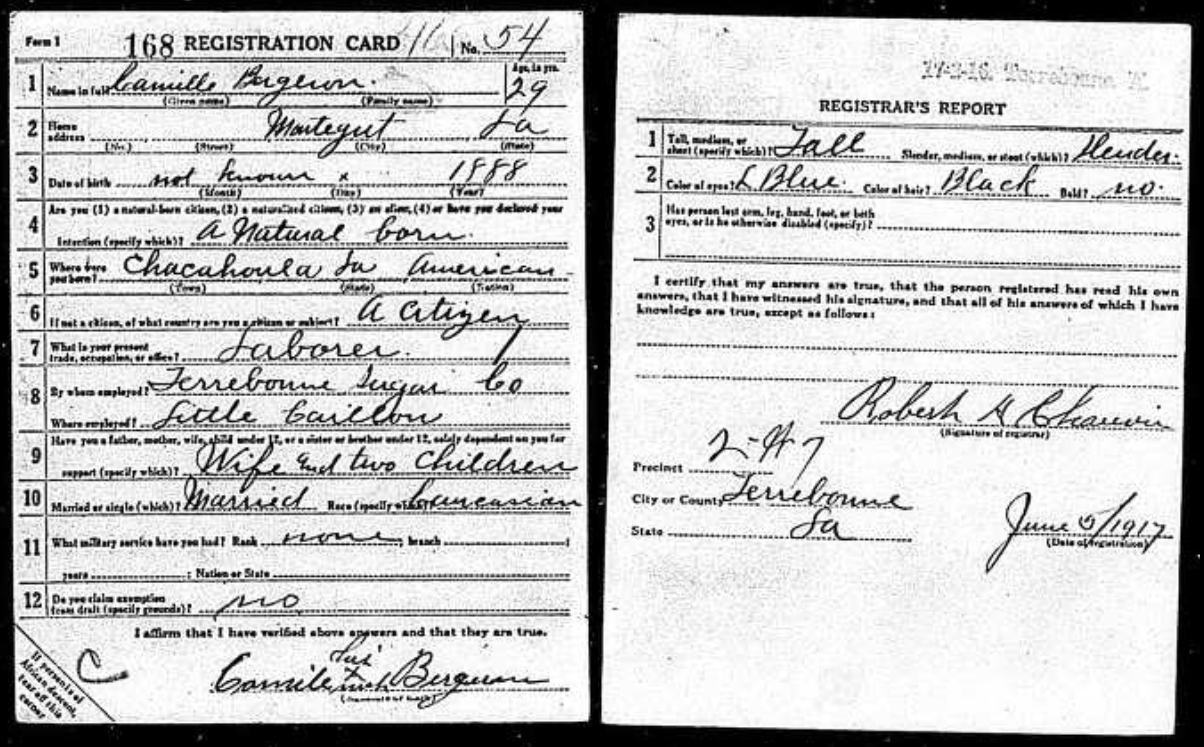 Form 1 168 REGISTRATION CARD No. 54
1 Name in full Camille Bergeron Age, in yrs. 29
(Given name) (Family name)
2 Home address Montegut La
(No.) (Street) (City) (State)
3 Date of birth not known x 1888
(Month) (Day) (Year)
4 Are you (1) a natural-born citizen, (2) a naturalized citizen, (3) an alien, (4) or have you declared your
intention (specify which)? A Natural born
5 Where were you born? Chacahoula La American
(Town) (State) (Nation)
6 If not a citizen, of what country are you a citizen or subject? A Citizen
7 What is your present trade, occupation, or office? Laborer
8 By whom employed? Terrebonne Sugar Co
Where employed? Little Caillou
9 Have you a father, mother, wife, child under 12, or a sister or brother under 12, solely dependent on you for
support (specify which)? Wife and two Children
10 Married or single (which)? Married Race (specify which)? Caucasian
11 What military service have you had? Rank none ; branch ;
years ; Nation or State
12 Do you claim exemption from draft (specify grounds)? no
I affirm that I have verified above answers and that they are true.
his
Camile mark Bergeron
If person is of
African descent,
tear off this
corner
C
17-3-16. Terrebonne
REGISTRAR'S REPORT
1 Tall, medium, or short (specify which)? Tall Slender, medium, or stout (which)? Slender
2 Color of eyes? L Blue Color of hair? Black Bald? no
3 Has person lost arm, leg, hand, foot, or both
eyes, or is he otherwise disabled (specify)?
I certify that my answers are true, that the person registered has read his own
answers, that I have witnessed his signature, and that all of his answers of which I have
knowledge are true, except as follows:
Robert H Chauvin
(Signature of registrar)
Precinct 2-#7
City or County Terrebonne
State La
June 5/1917
(Date of registration)